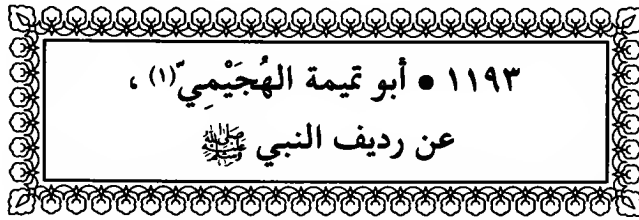 ١١٩٣ • أبو تميمة الهُجَيْمِيّ(١) ،
عن رديف النبي ﷺ